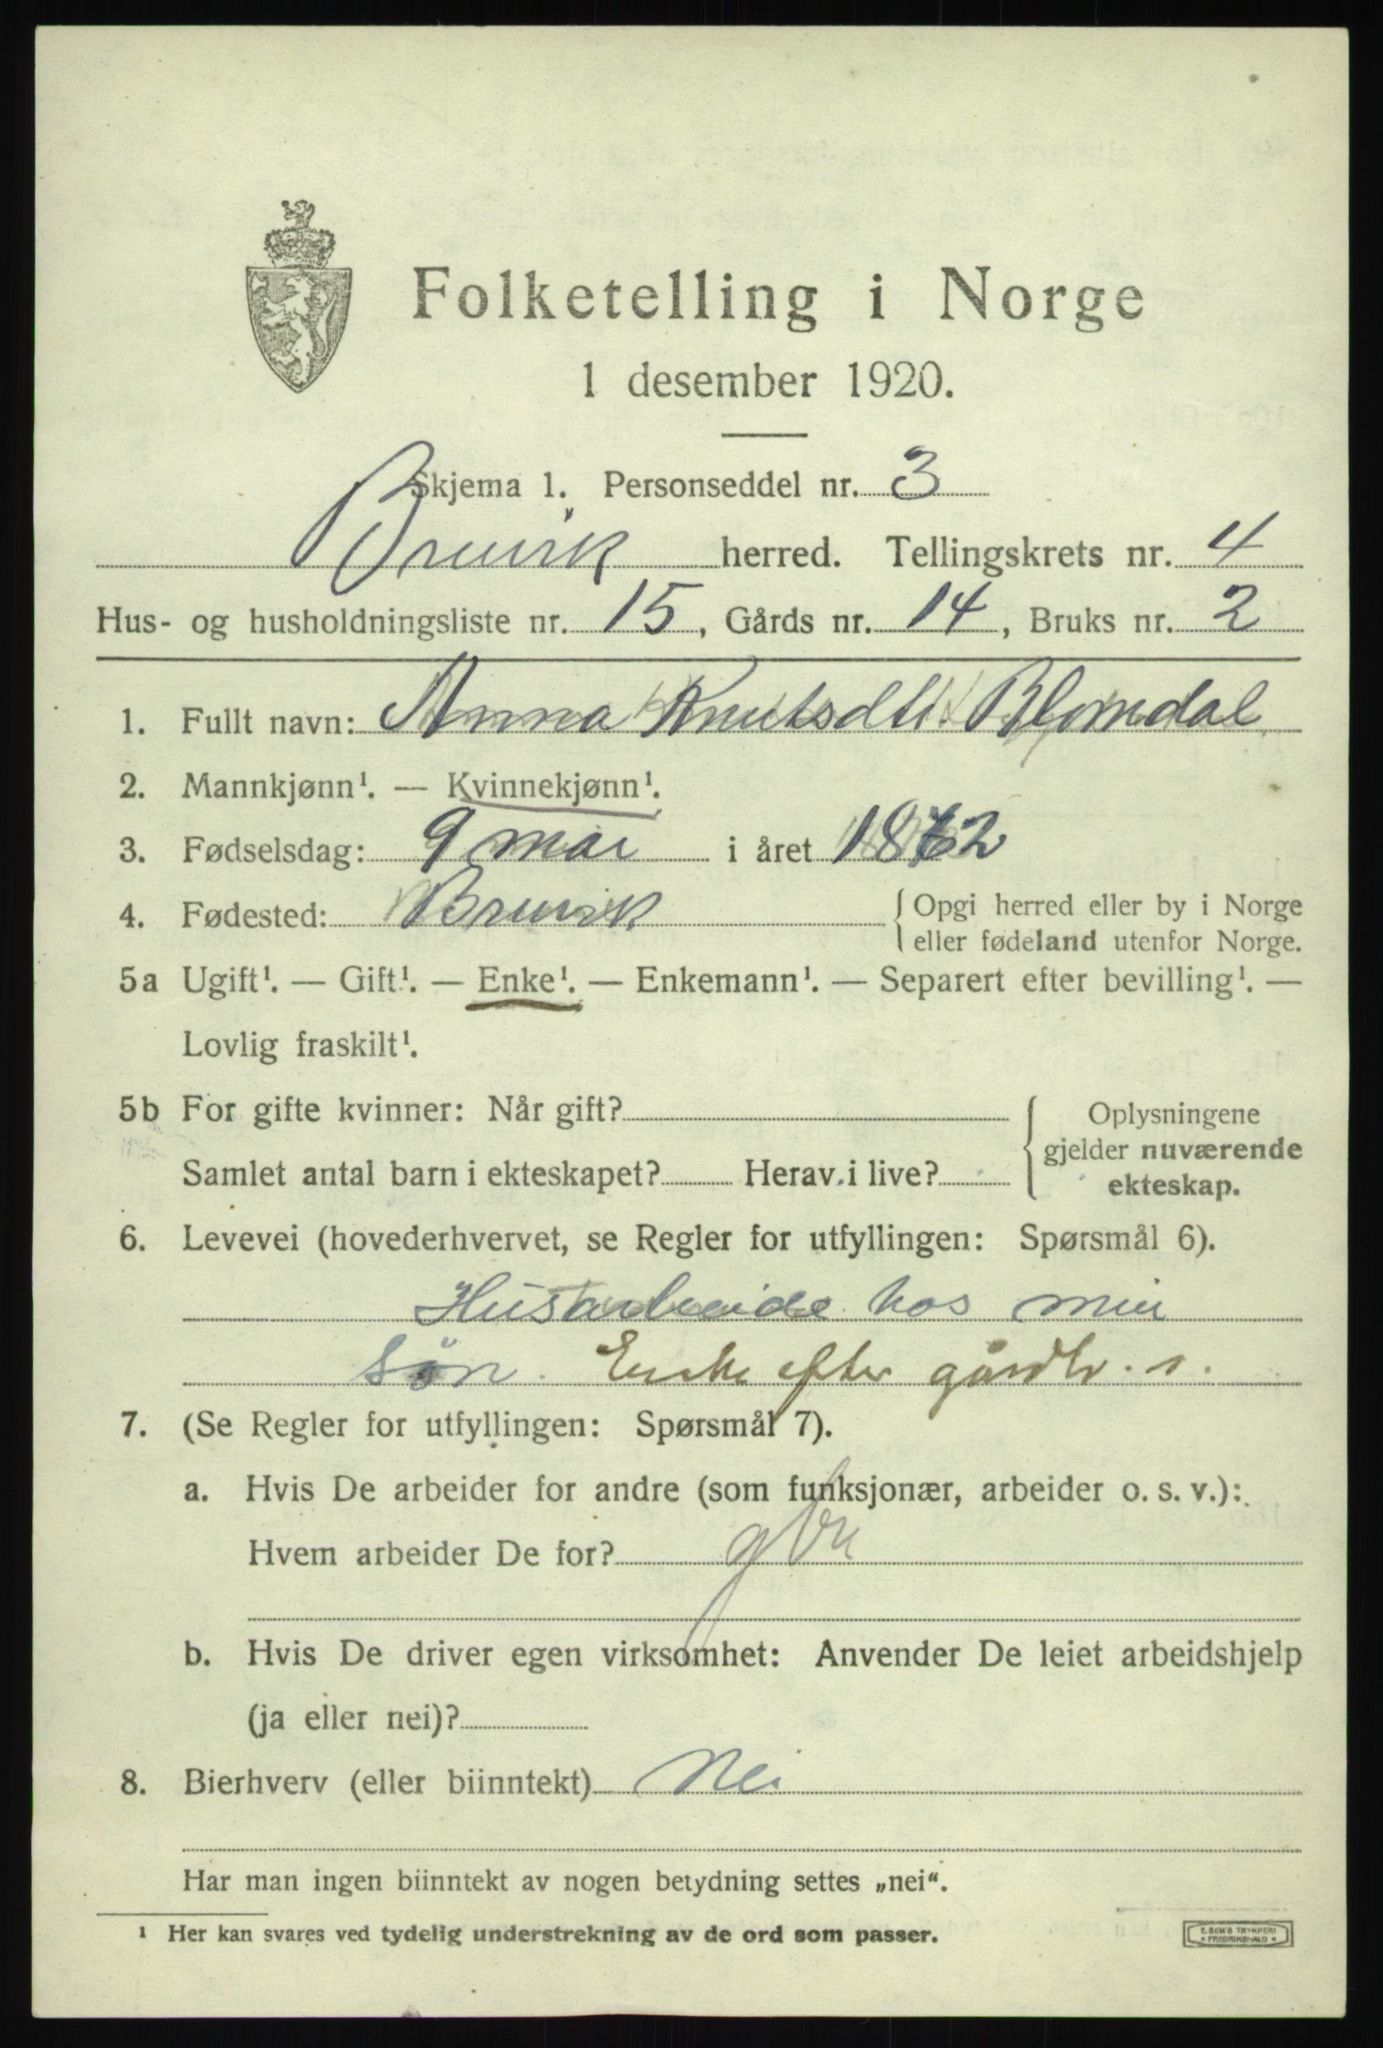 Folketelling i Norge
1 desember 1920.
Skjema 1. Personseddel nr. 3
Bruvik herred. Tellingskrets nr. 4
Hus- og husholdningsliste nr. 15, Gårds nr. 14, Bruks nr. 2
1. Fullt navn: Anna Knutsdtr. Blomdal
2. Mannkjønn¹. — Kvinnekjønn¹.
3. Fødselsdag: 9 mai i året 1862
4. Fødested: Bruvik { Opgi herred eller by i Norge
eller fødeland utenfor Norge.
5a Ugift¹. — Gift¹. — Enke¹. — Enkemann¹. — Separert efter bevilling¹. —
Lovlig fraskilt¹.
5b For gifte kvinner: Når gift?
Samlet antal barn i ekteskapet? Herav i live?
Oplysningene
gjelder nuværende
ekteskap.
6. Levevei (hovederhvervet, se Regler for utfyllingen: Spørsmål 6).
Husarbeide hos min
søn. Enke efter gårdbr. s.
7. (Se Regler for utfyllingen: Spørsmål 7).
a. Hvis De arbeider for andre (som funksjonær, arbeider o. s. v.):
Hvem arbeider De for?
b. Hvis De driver egen virksomhet: Anvender De leiet arbeidshjelp
(ja eller nei)?
8. Bierhverv (eller biinntekt) Nei
Har man ingen biinntekt av nogen betydning settes „nei“.
¹ Her kan svares ved tydelig understrekning av de ord som passer.
E. SEM'S TRYKKERI
FREDRIKSHALD